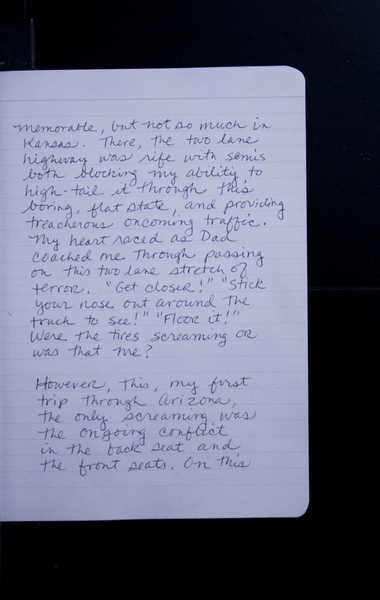 memorable, but not so much in
Kansas. There, the two lane
highway was rife with semis
both blocking my ability to
high-tail it through this
boring, flat state, and providing
treacherous oncoming traffic.
My heart raced as Dad
coached me through passing
on this two lane stretch of
terror. "Get closer!" "Stick
your nose out around the
truck to see!" "Floor it!"
Were the tires screaming or
was that me?
However, this, my first
trip through Arizona,
the only screaming was
the ongoing conflict
in the back seat and
the front seats. On this